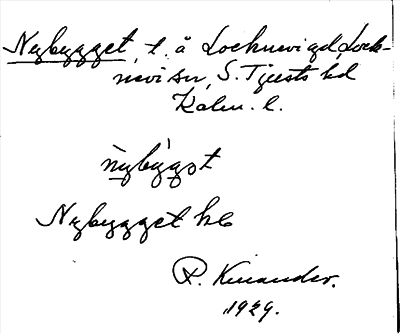 Nybygget, t. å Locknevi gd, Lock-
nevi sn, S. Tjusts hd
Kalm. l.
nybygət
Nybygget hb
R. Kinander.
1929.